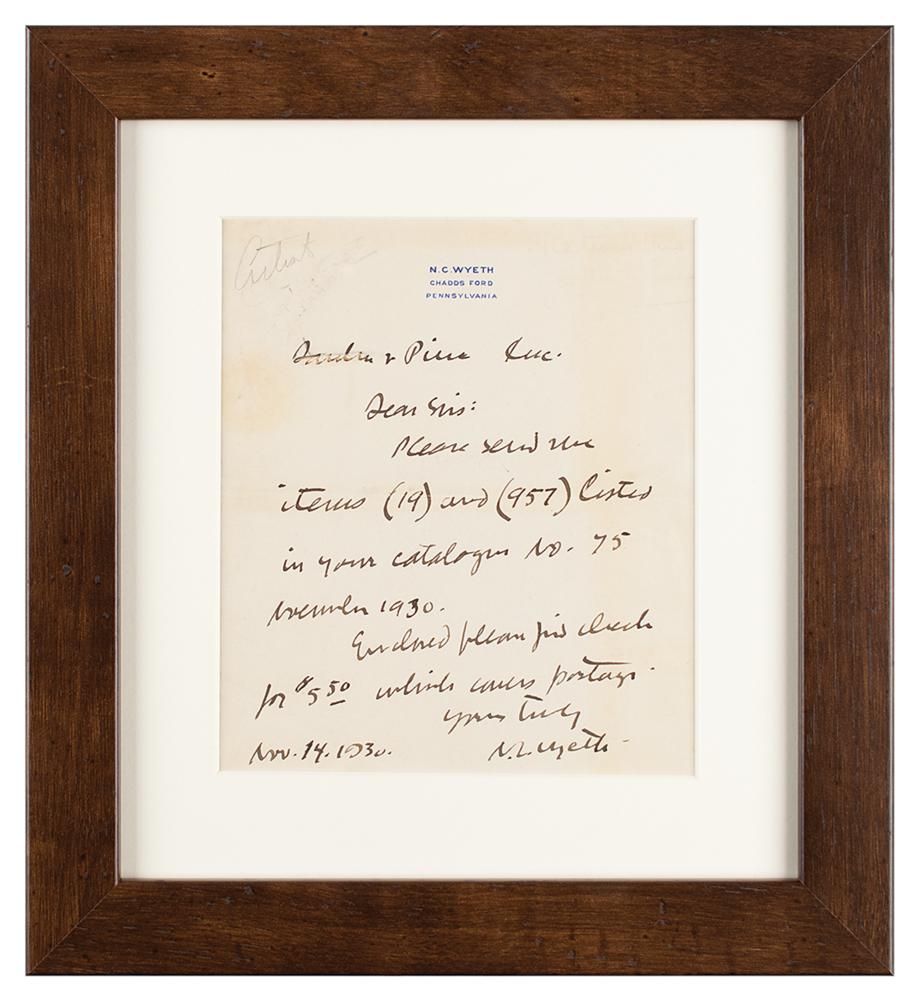 Artist
N. C. WYETH
CHADDS FORD
PENNSYLVANIA
& Pine Inc.
Dear Sirs:
Please send me
items (19) and (957) listed
in your catalogue No. 75
November 1930.
Enclosed please find check
for $5.50 which covers postage.
Yours truly
Nov. 14. 1930.
N. C. Wyeth